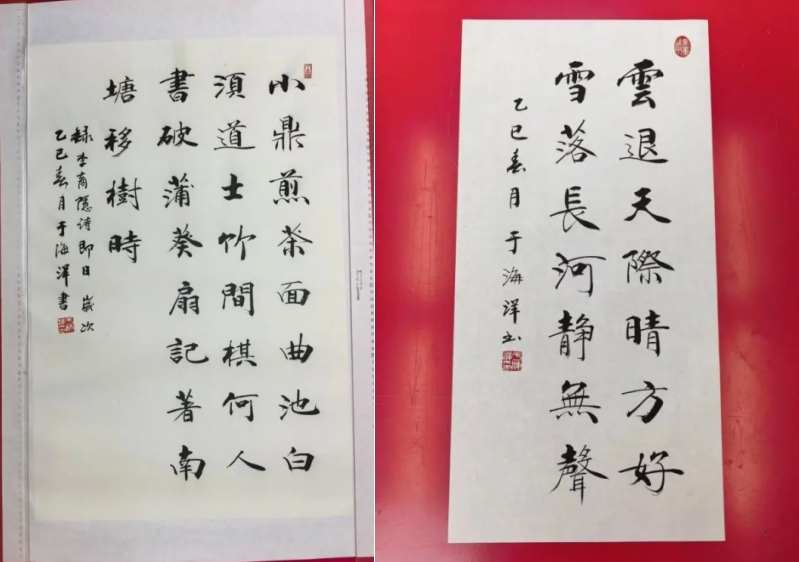 小鼎煎茶面曲池白
湏道士竹間棋何人
書破蒲葵扇記著南
塘移樹時
録李商隱诗即日 歲次
乙巳春月于海洋書
雲退天際晴方好
雪落長河靜無聲
乙巳春月于海洋书